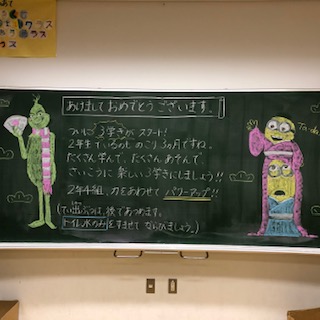 あけましておめでとうございます。
ついに3学きがスタート!
2年生でいるのものこり3ヵ月ですね。
たくさん学んで、たくさんあそんで
さいこうに楽しい3学きにしましょう!!
2年4組、力をあわせてパワーアップ!!
ていしゅつ物は、後であつめます。
トイレ、水のみをすませてならびましょう。
Ta-da